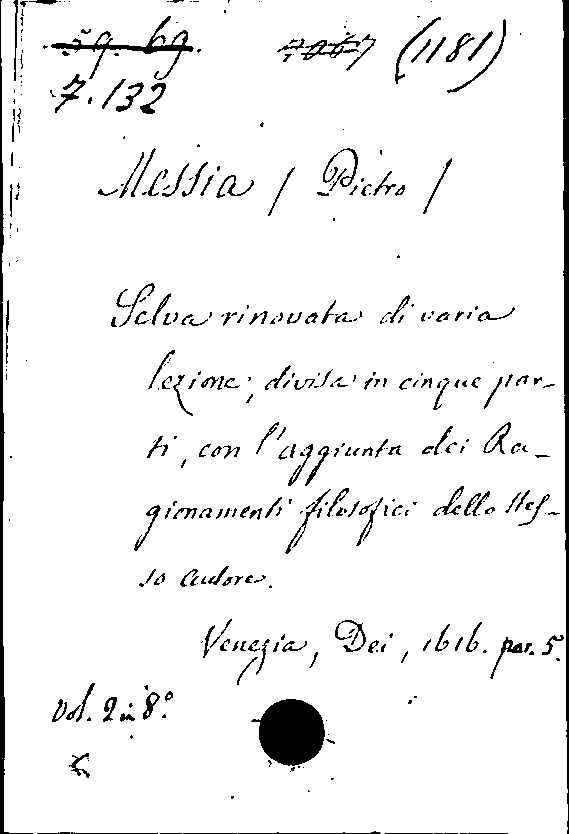 59. 69. 7067 (1181)
7.132
Messia / Pietro /
Selva rinovata di varia
lezione, divisa in cinque par-
ti, con l'aggiunta dei Ra-
gionamenti filosofici dello stes-
so autore.
Venezia, Dei, 1616. par. 5.
Vol. 2 in 8.°